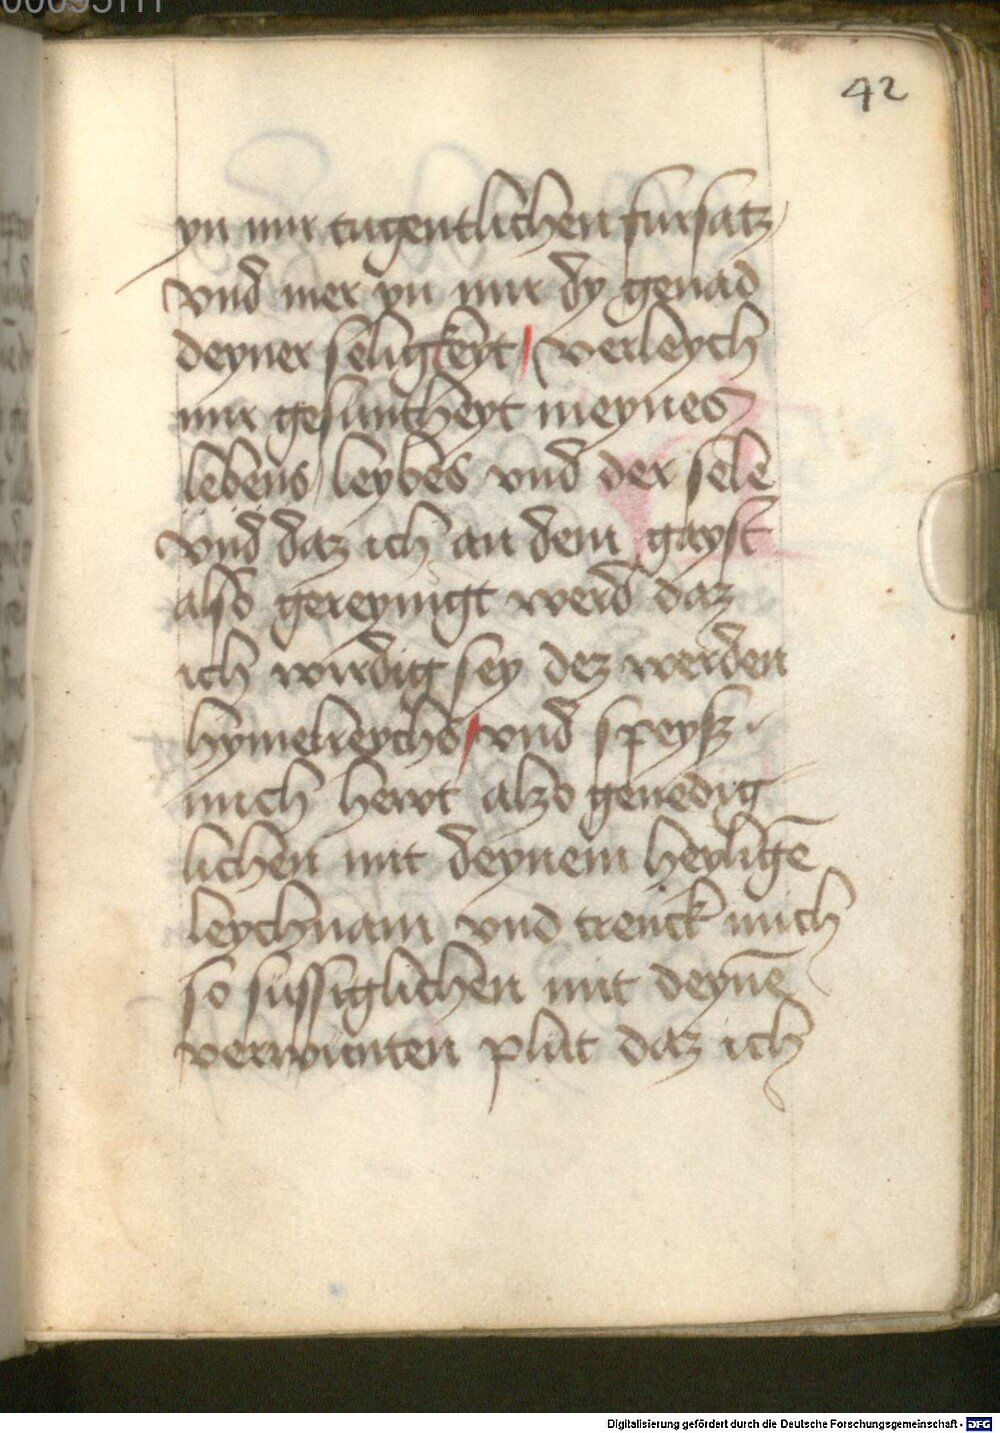 42
yn mir tugentlichen fursatz
vnd mer yn mir dy genad
deyner seligkeyt / verleych
mir gesuntheyt meynes
lebens leybes vnd der sele
vnd daz ich an dem gayst
also gereynigt werd daz
ich wirdig sey dez werden
hymelreychs / vnd speysz
mich hewt alzo genedig
lichen mit deynem heyligē
leychnam vnd trenck mich
so sussiglichen mit deynē
verwunten plut daz ich
Digitalisierung gefördert durch die Deutsche Forschungsgemeinschaft - DFG